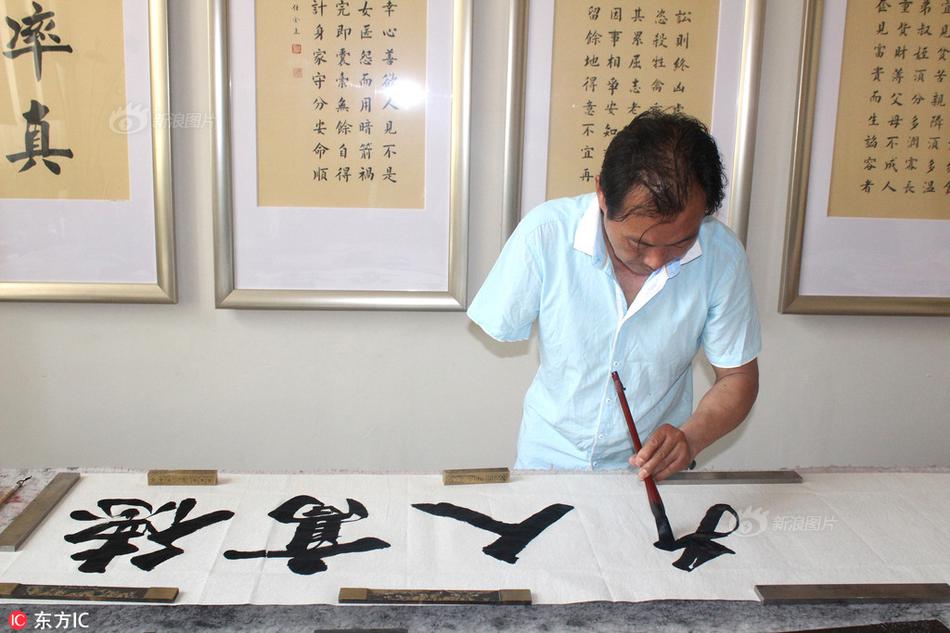 率真
幸心善欲人見不是
女匿怨而用暗箭禍
完即囊橐無餘自得
計身家守分安命順
訟則終凶處
恣殺牲禽
其累屈志老
因事相爭安知
留餘地得意不宜再
見貧苦親隣須多溫
弟叔姪須分多潤寡長
重貲財薄父母不成人
奩見富貴而生諂容者
德高人
新浪图片
新浪图片
IC 东方IC